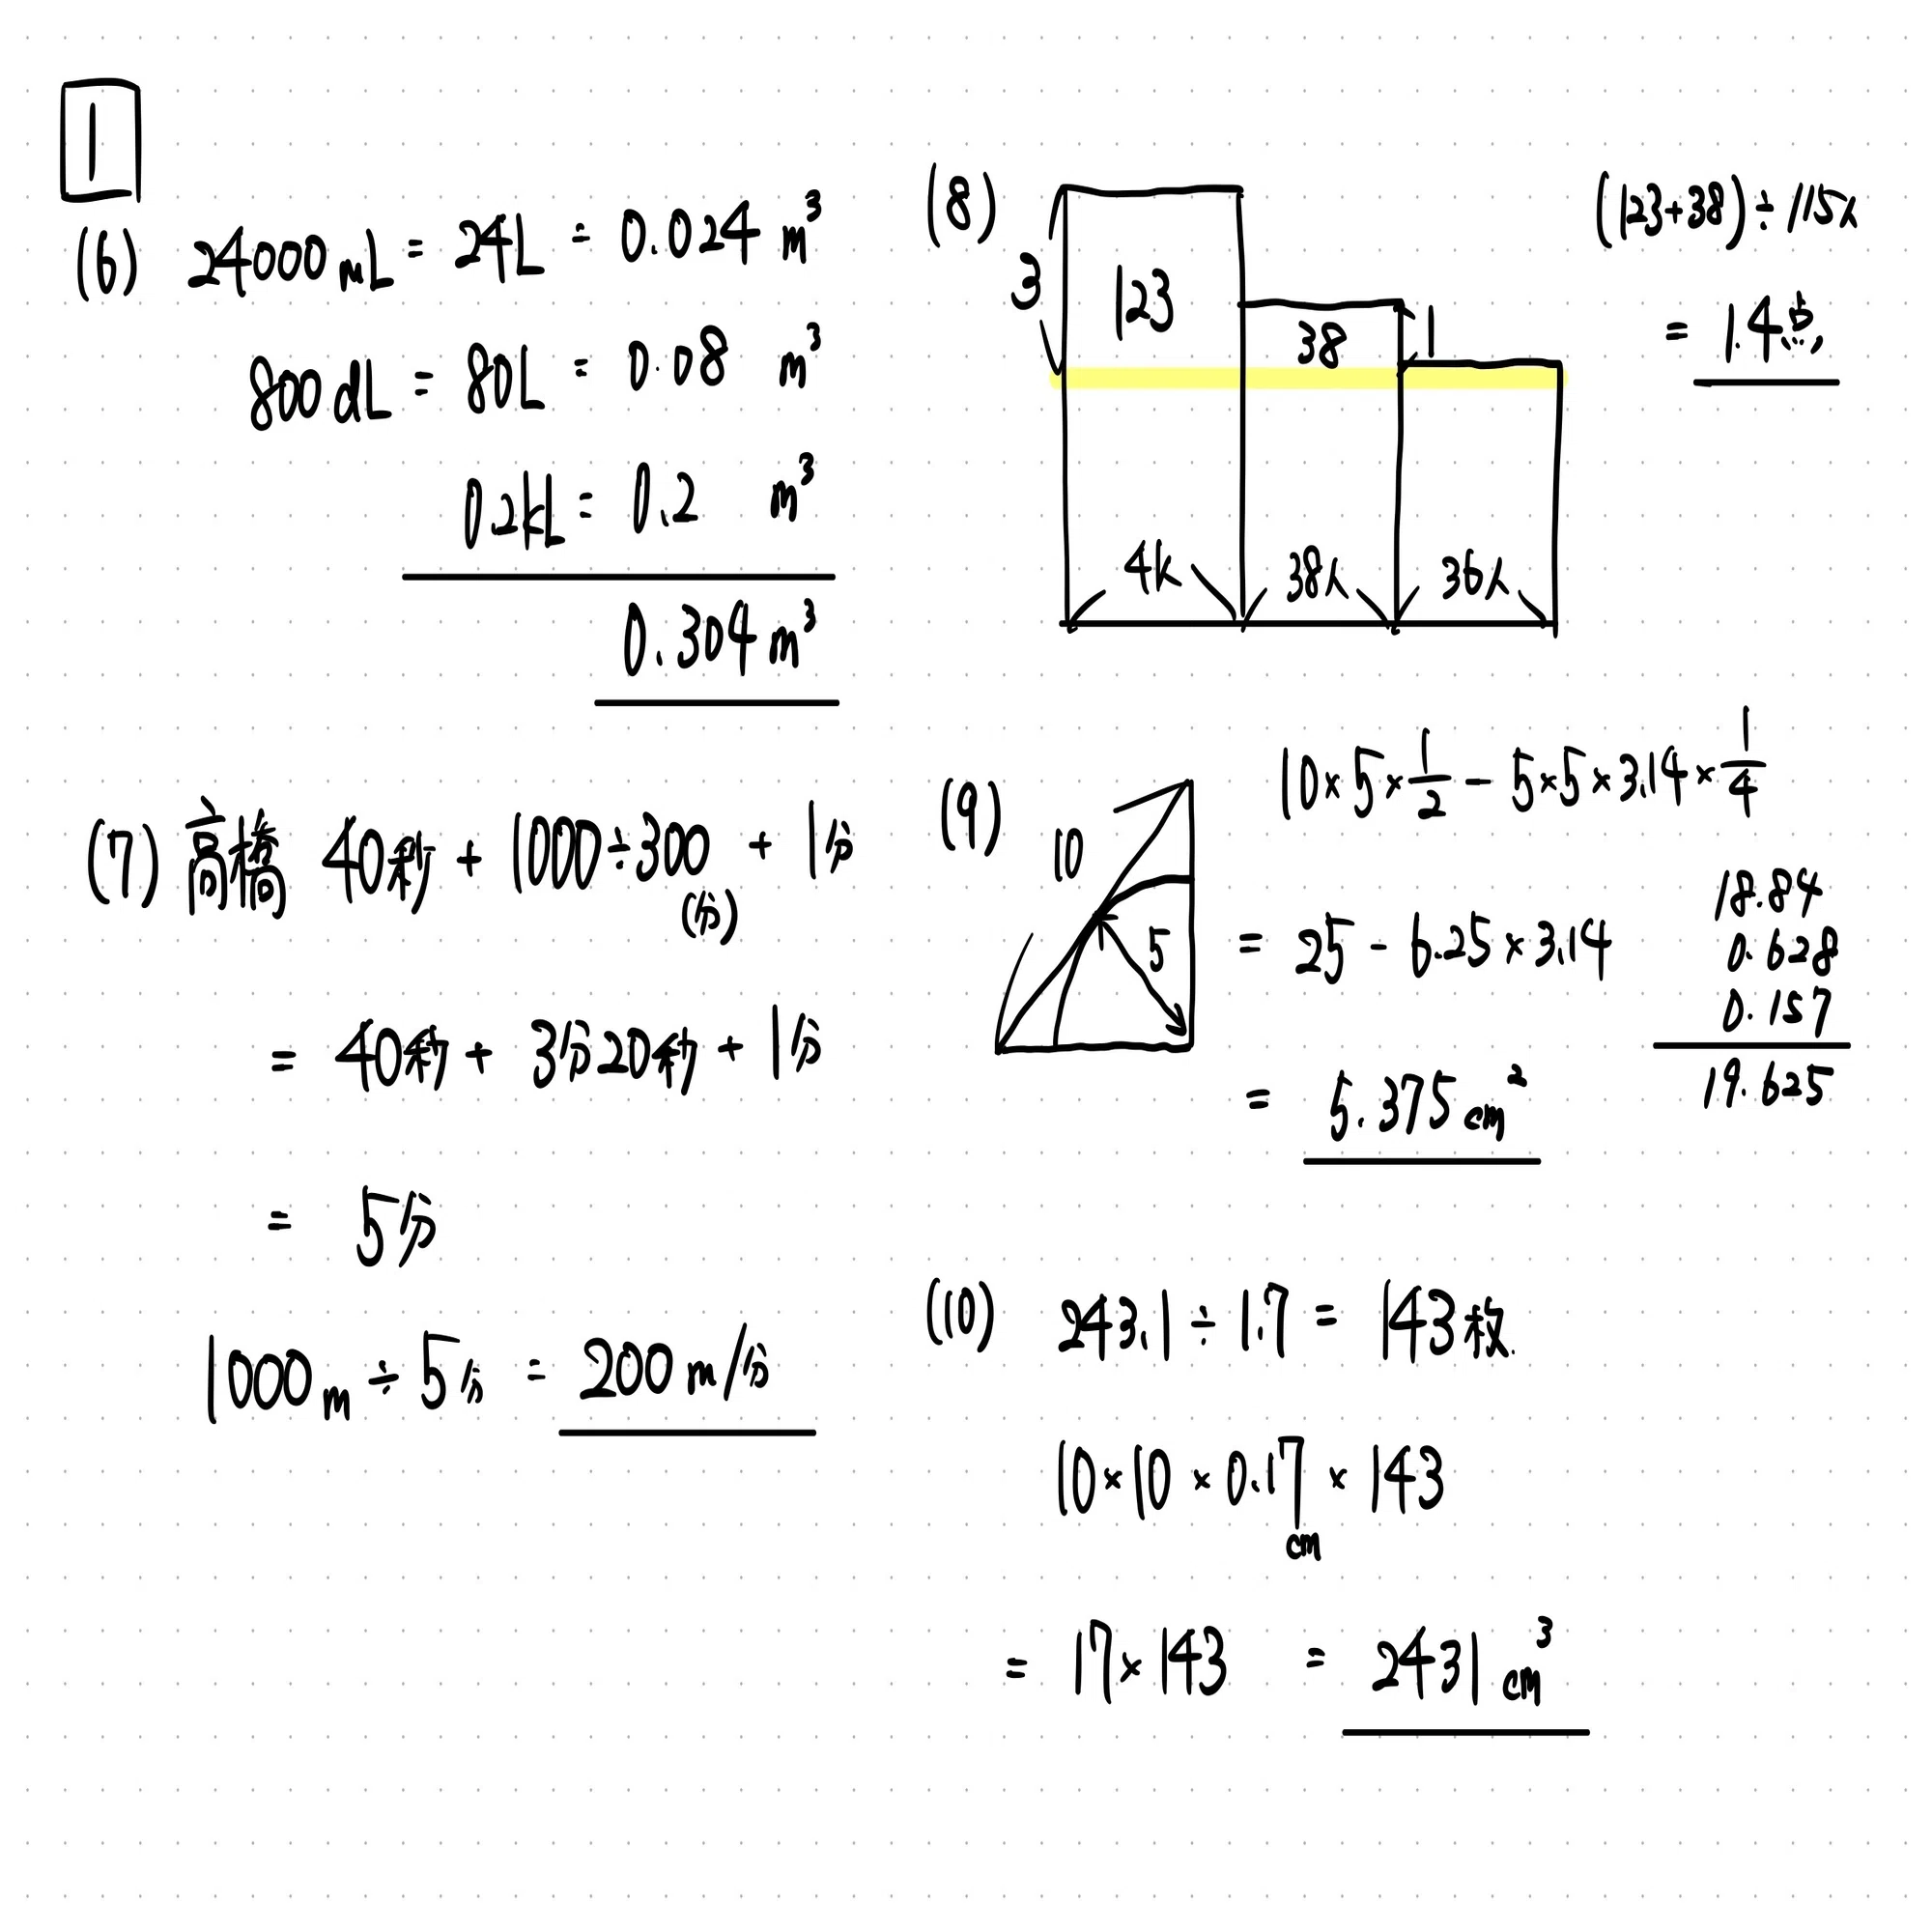 1
(6) 24000mL = 24L = 0.024 m³
800dL = 80L = 0.08 m³
0.2kL = 0.2 m³
0.304m³
(7) 高橋 40秒 + 1000÷300 + 1分
(分)
= 40秒 + 3分20秒 + 1分
= 5分
1000m ÷ 5分 = 200m/分
(8)
3
123
38
1
38人
36人
(123+38)÷115人
= 1.4
(9)
10
5
10×5×1/2 - 5×5×3.14×1/4
= 25 - 6.25×3.14
18.84
0.628
0.157
19.625
= 5.375cm²
(10) 243.1÷1.7 = 143枚.
10×10×0.17×143
cm
= 17×143 = 2431cm³